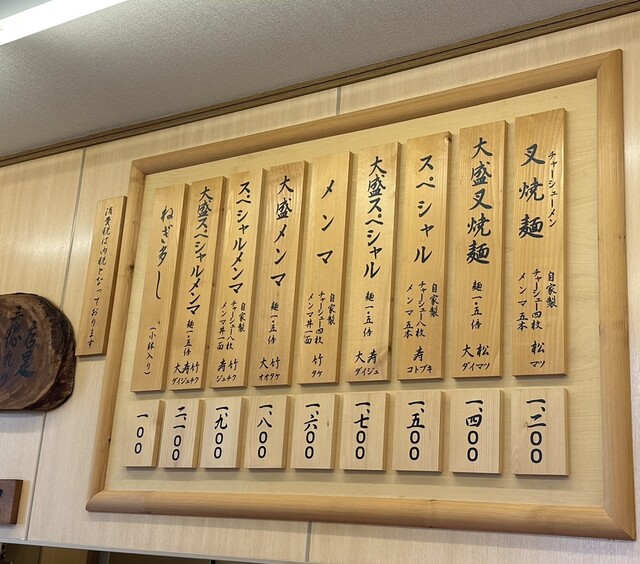 チャーシューメン
叉焼麺
自家製
チャーシュー四枚
メンマ五本
松
マツ
一、二〇〇
大盛叉焼麺
麺一・五倍
大松
ダイマツ
一、四〇〇
スペシャル
自家製
チャーシュー八枚
メンマ五本
寿
コトブキ
一、五〇〇
大盛スペシャル
麺一・五倍
大寿
ダイジュ
一、七〇〇
メンマ
自家製
チャーシュー四枚
メンマ丼一面
竹
タケ
一、六〇〇
大盛メンマ
麺一・五倍
大竹
オオタケ
一、八〇〇
スペシャルメンマ
自家製
チャーシュー八枚
メンマ丼一面
寿竹
ジュチク
一、九〇〇
大盛スペシャルメンマ
麺一・五倍
大寿竹
ダイジュチク
二、一〇〇
ねぎ多し
(小鉢入り)
一〇〇
消費税は内税となっております